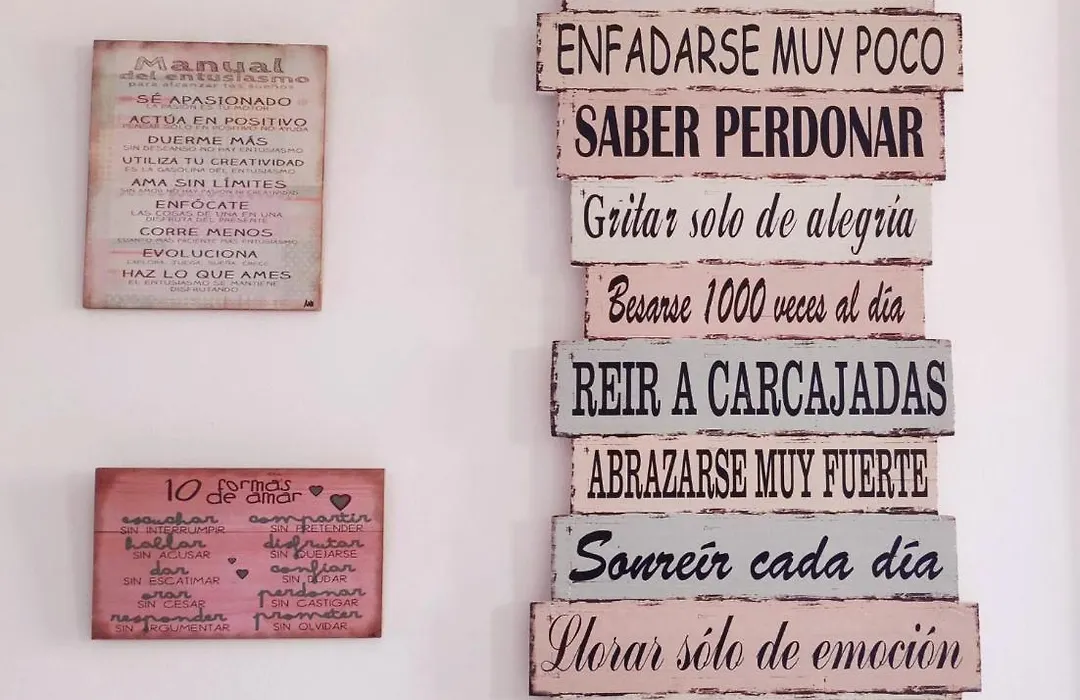 Manual
del entusiasmo
para alcanzar tus sueños
SÉ APASIONADO
LA PASIÓN ES TU MOTOR
ACTÚA EN POSITIVO
PENSAR SÓLO EN POSITIVO NO AYUDA
DUERME MÁS
SIN DESCANSO NO HAY ENTUSIASMO
UTILIZA TU CREATIVIDAD
ES LA GASOLINA DEL ENTUSIASMO
AMA SIN LÍMITES
SIN AMOR NO HAY PASIÓN NI CREATIVIDAD
ENFÓCATE
LAS COSAS DE UNA EN UNA
DISFRUTA DEL PRESENTE
CORRE MENOS
CUANTO MÁS PACIENTE MÁS ENTUSIASMO
EVOLUCIONA
EXPLORA, JUEGA, SUEÑA, CRECE
HAZ LO QUE AMES
EL ENTUSIASMO SE MANTIENE
DISFRUTANDO
10 formas
de amar
escuchar
SIN INTERRUMPIR
hablar
SIN ACUSAR
dar
SIN ESCATIMAR
orar
SIN CESAR
responder
SIN ARGUMENTAR
compartir
SIN PRETENDER
disfrutar
SIN QUEJARSE
confiar
SIN DUDAR
perdonar
SIN CASTIGAR
prometer
SIN OLVIDAR
ENFADARSE MUY POCO
SABER PERDONAR
Gritar solo de alegría
Besarse 1000 veces al día
REIR A CARCAJADAS
ABRAZARSE MUY FUERTE
Sonreír cada día
Llorar sólo de emoción